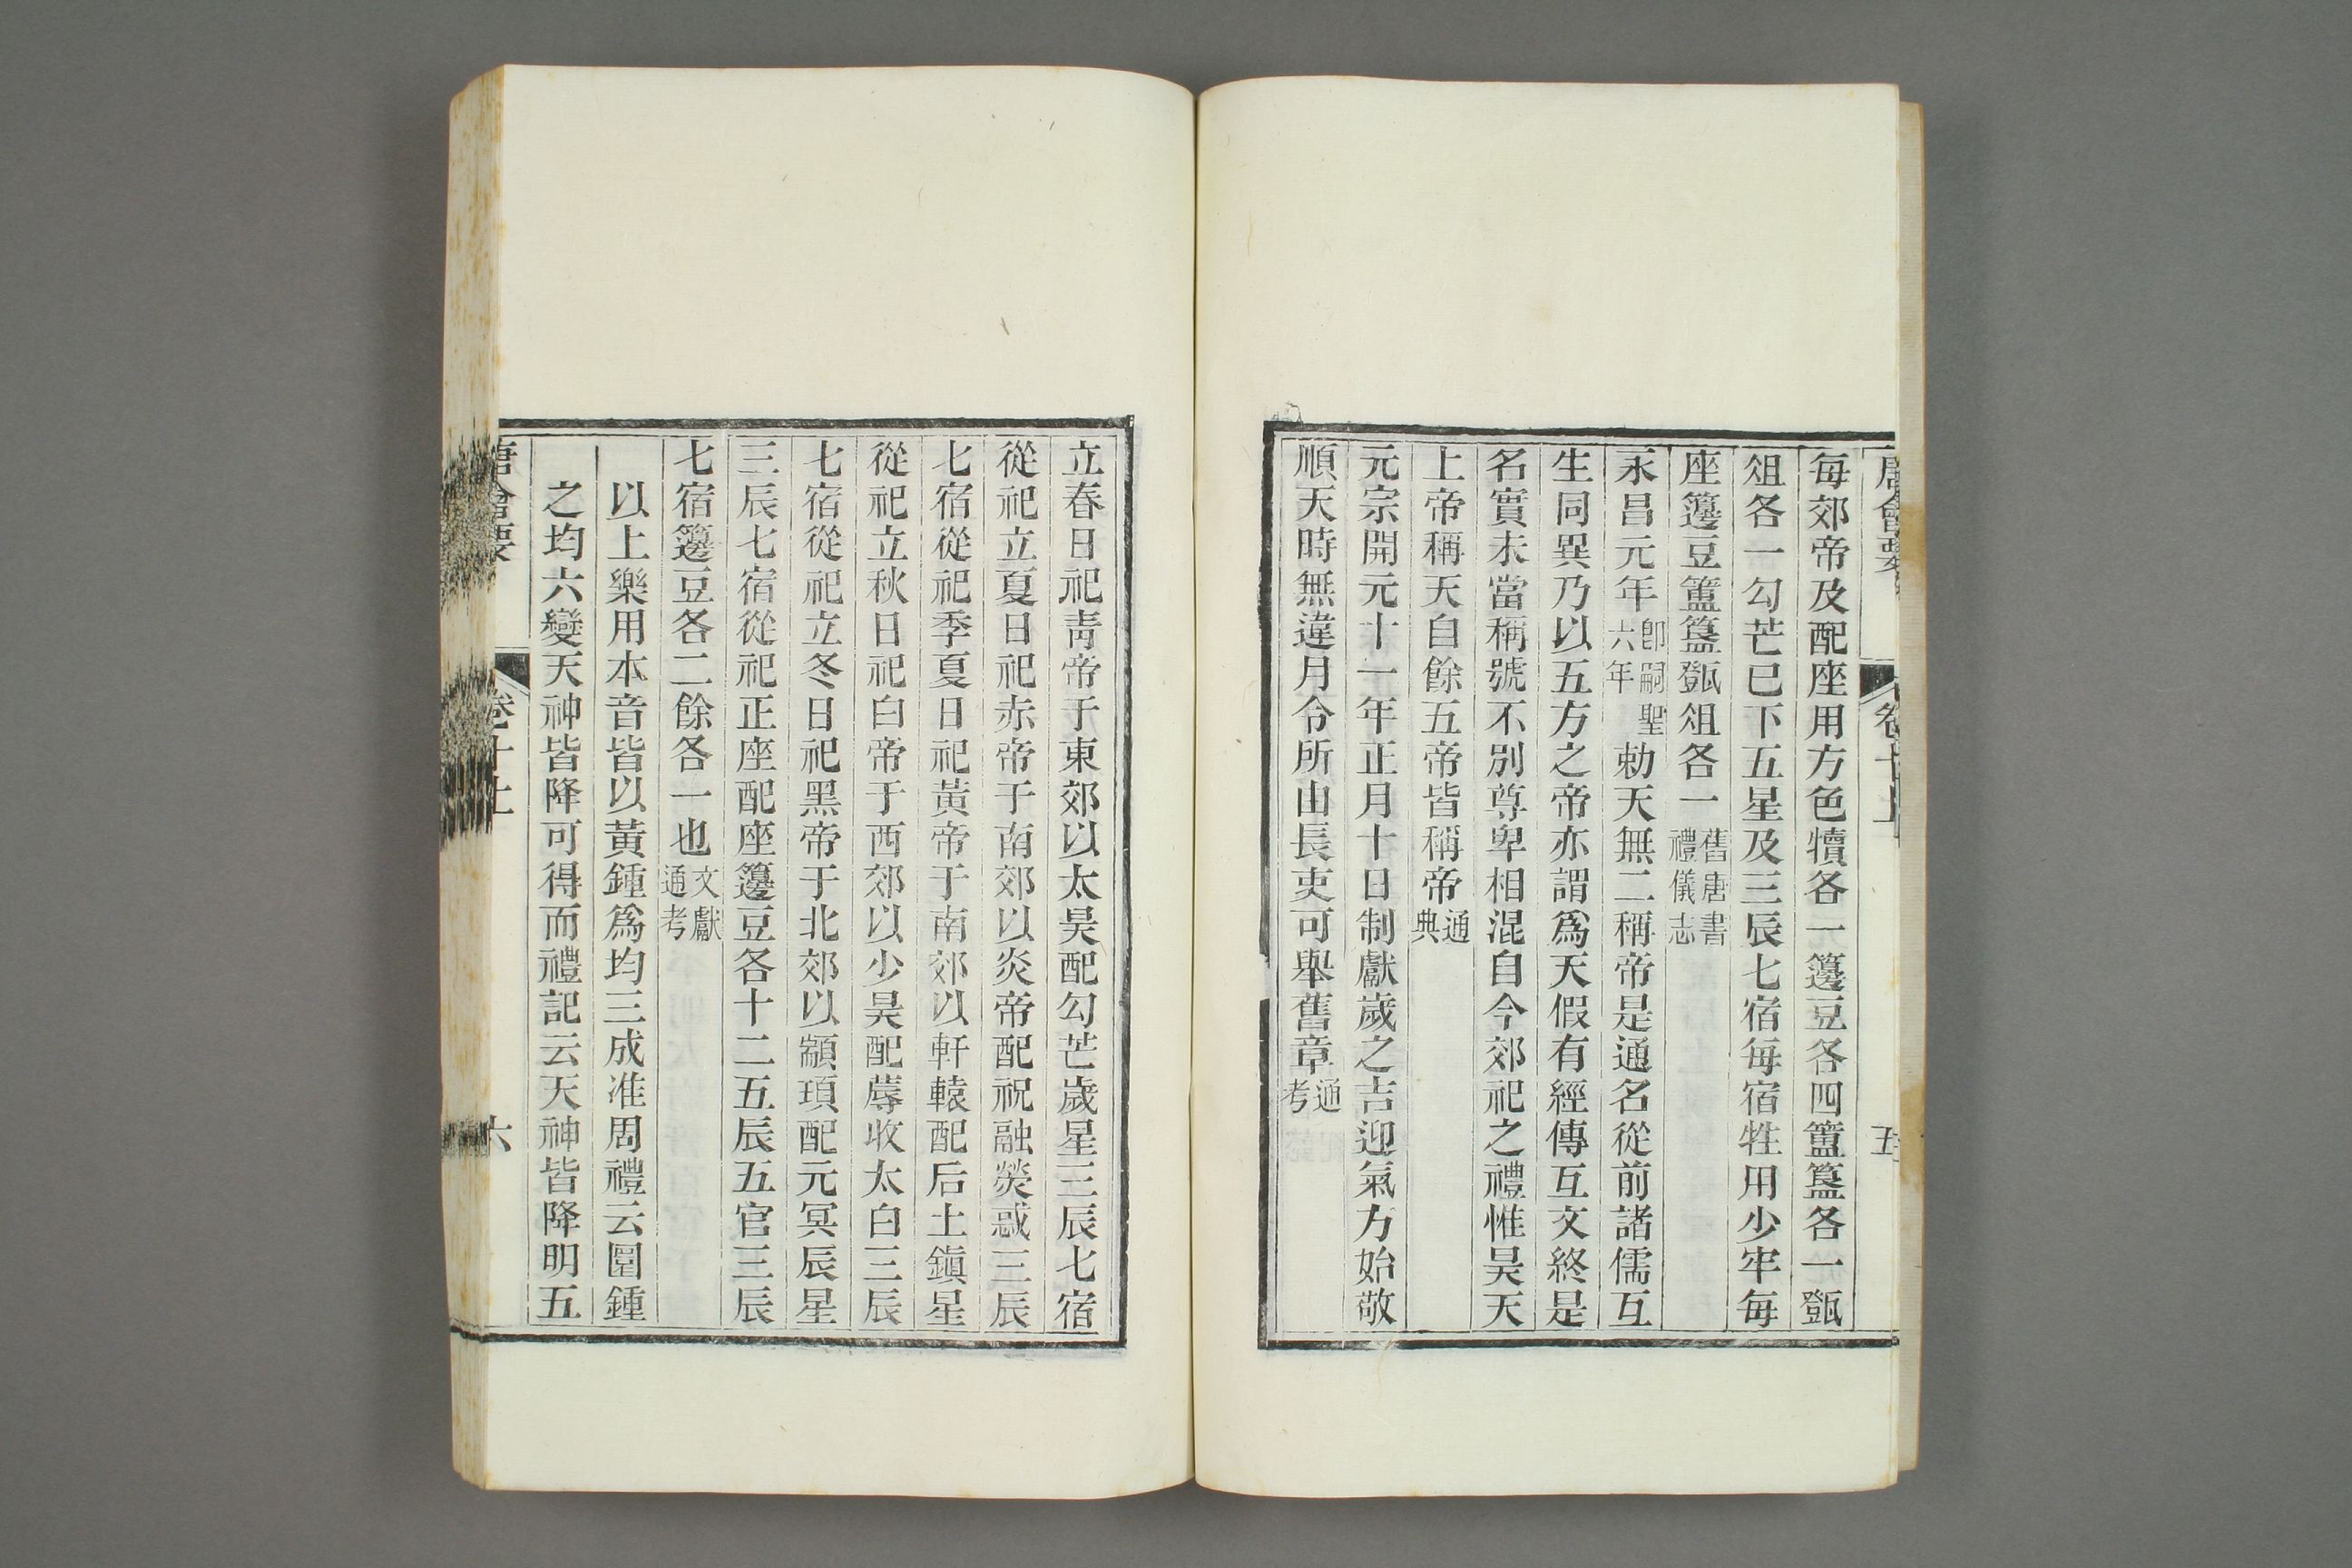 唐會要 卷十上 五
每郊帝及配座用方色犢各一籩豆各四簠簋各一㽅
俎各一勾芒已下五星及三辰七宿每宿牲用少牢每
座籩豆簠簋㽅俎各一舊唐書禮儀志
永昌元年卽嗣聖六年勅天無二稱帝是通名從前諸儒互
生同異乃以五方之帝亦謂爲天假有經傳互文終是
名實未當稱號不別尊卑相混自今郊祀之禮惟昊天
上帝稱天自餘五帝皆稱帝通典
元宗開元十一年正月十日制獻歲之吉迎氣方始敬
順天時無違月令所由長吏可舉舊章通考
立春日祀靑帝于東郊以太昊配勾芒歲星三辰七宿
從祀立夏日祀赤帝于南郊以炎帝配祝融熒惑三辰
七宿從祀季夏日祀黃帝于南郊以軒轅配后土鎭星
從祀立秋日祀白帝于西郊以少昊配蓐收太白三辰
七宿從祀立冬日祀黑帝于北郊以顓頊配元冥辰星
三辰七宿從祀正座配座籩豆各十二五辰五官三辰
七宿籩豆各二餘各一也文獻通考
以上樂用本音皆以黃鍾爲均三成准周禮云圜鍾
之均六變天神皆降可得而禮記云天神皆降明五
唐會要 卷十上 六